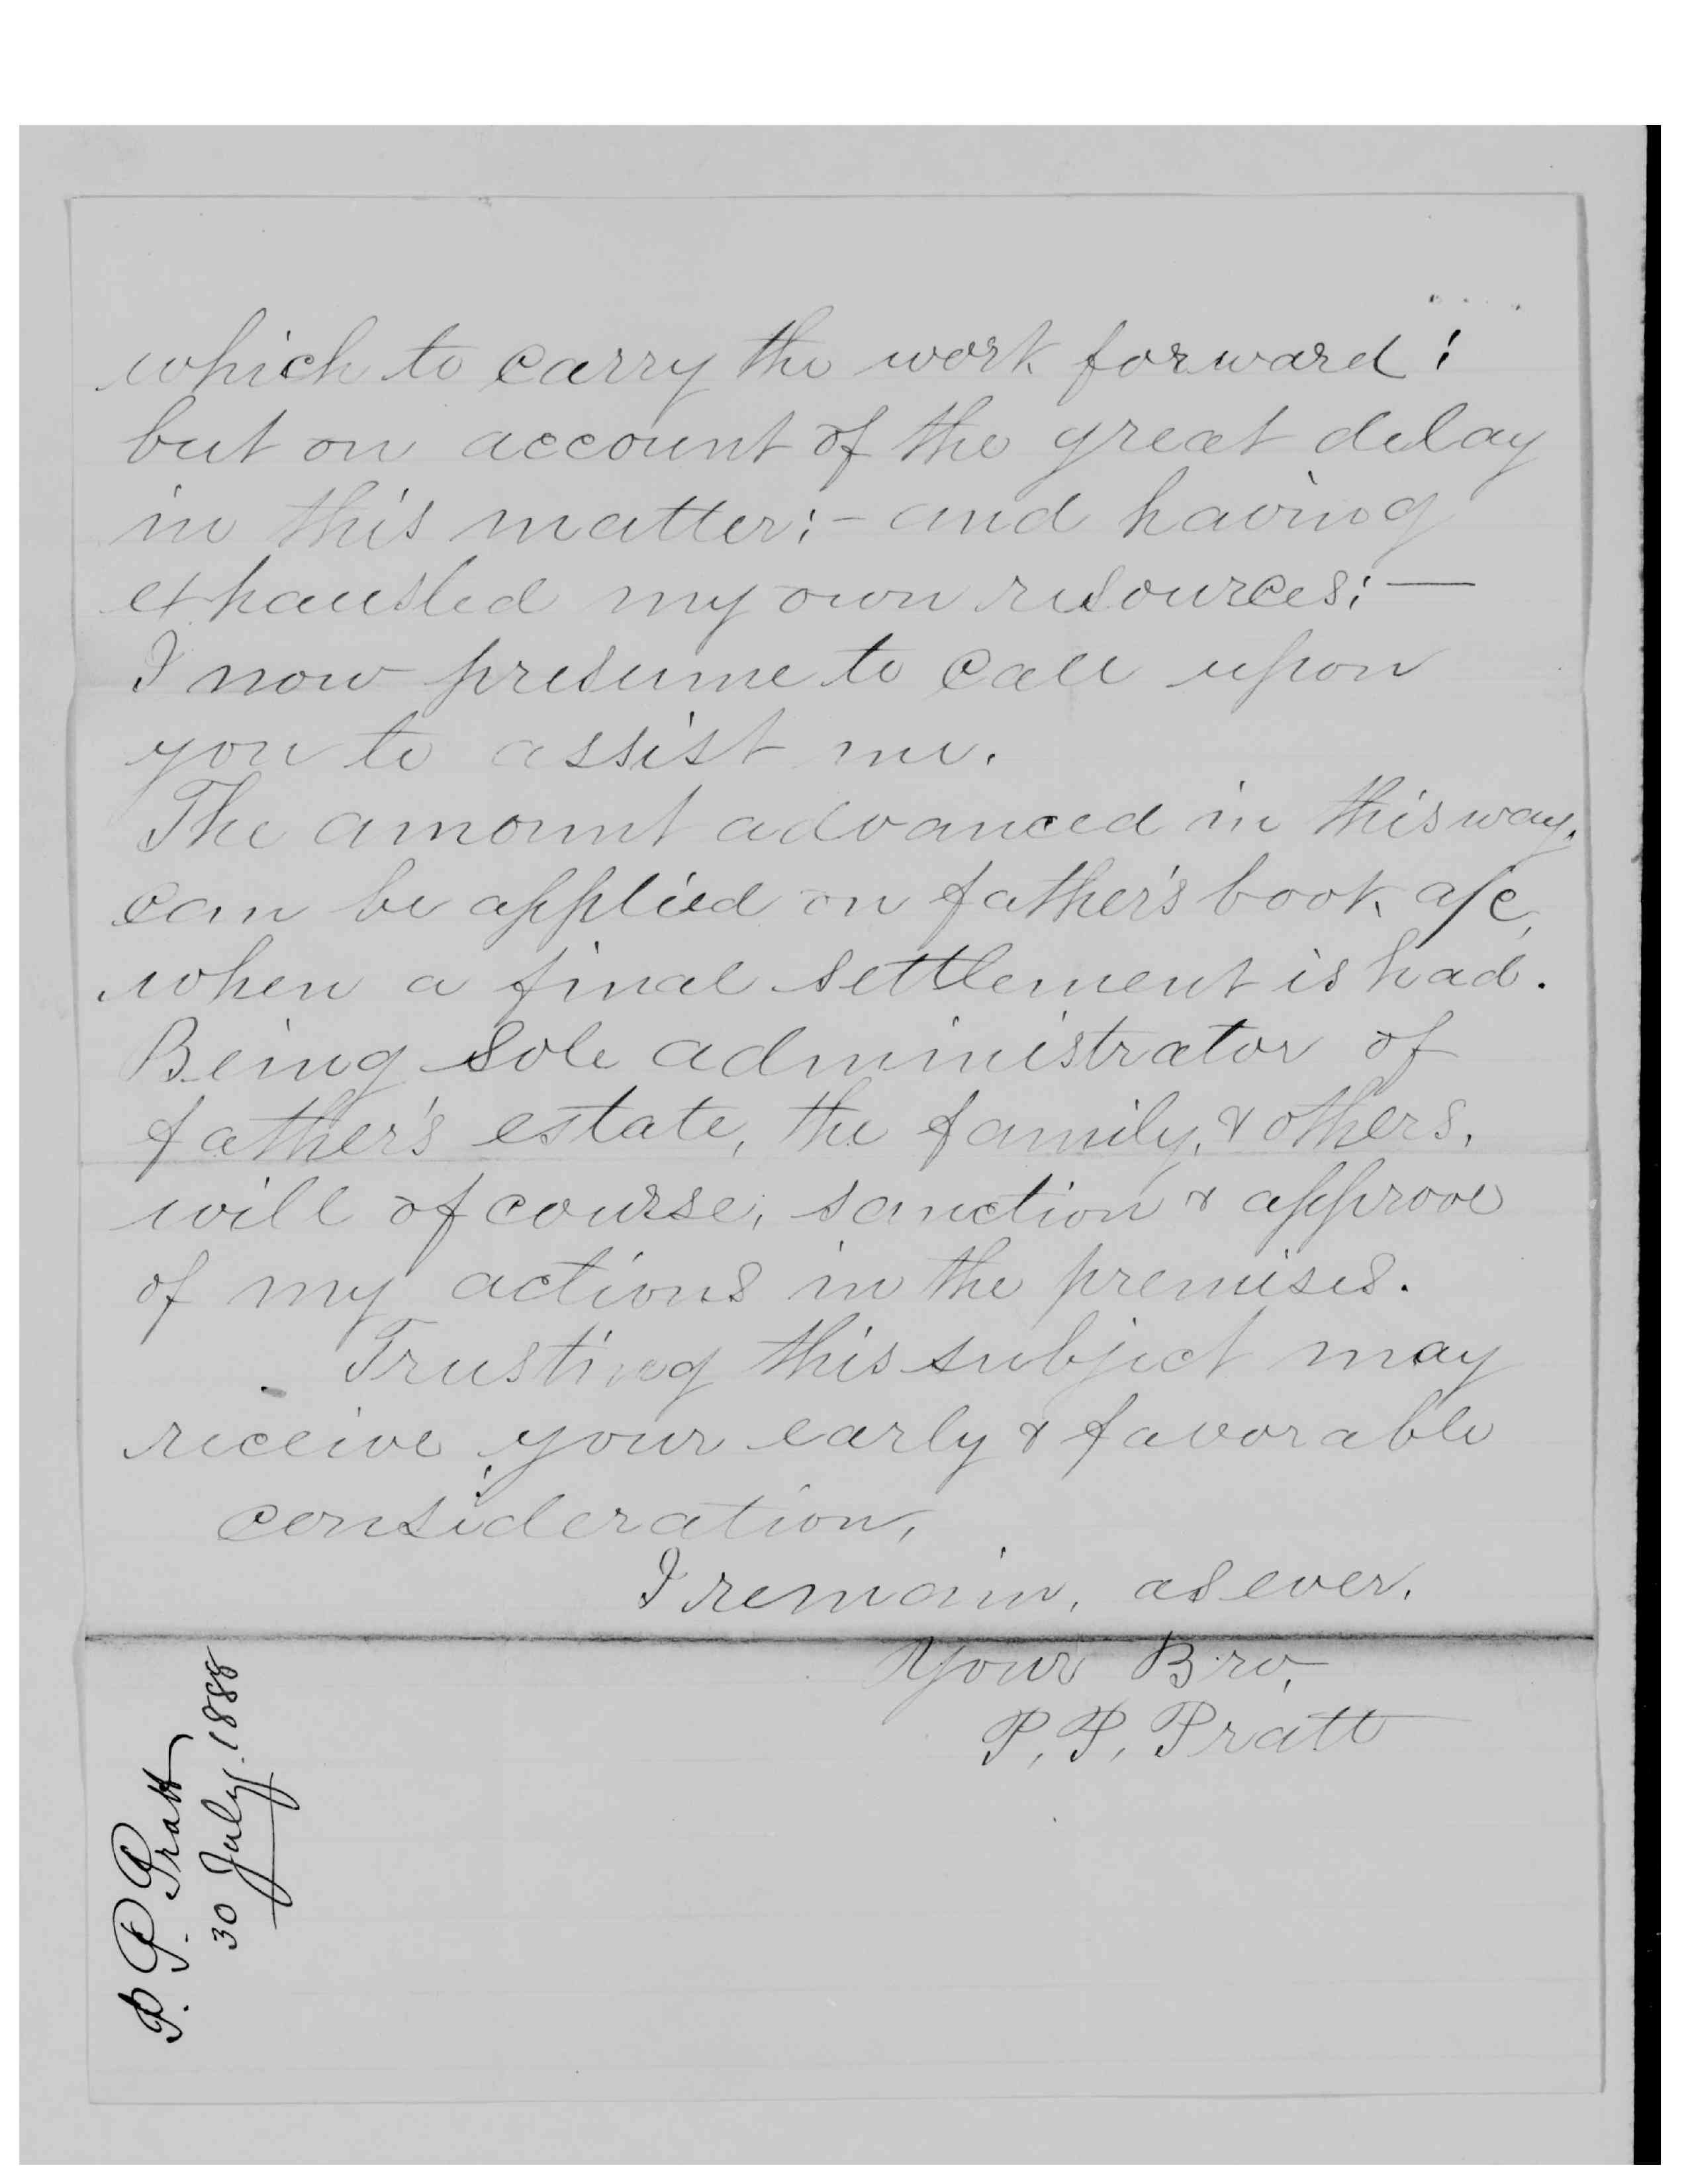 which to carry the work forward;
but on account of the great delay
in this matter:- and having
exhausted my own resources:—
I now presume to call upon
you to assist me.
The amount advanced in this way,
can be applied on father's book a/c,
when a final settlement is had.
Being sole administrator of
father's estate, the family, & others,
will of course, sanction & approve
of my actions in the premises.
Trusting this subject may
receive your early & favorable
consideration,
I remain, as ever,
Your Bro,
P. P. Pratt
P. P. Pratt
30 July. 1888